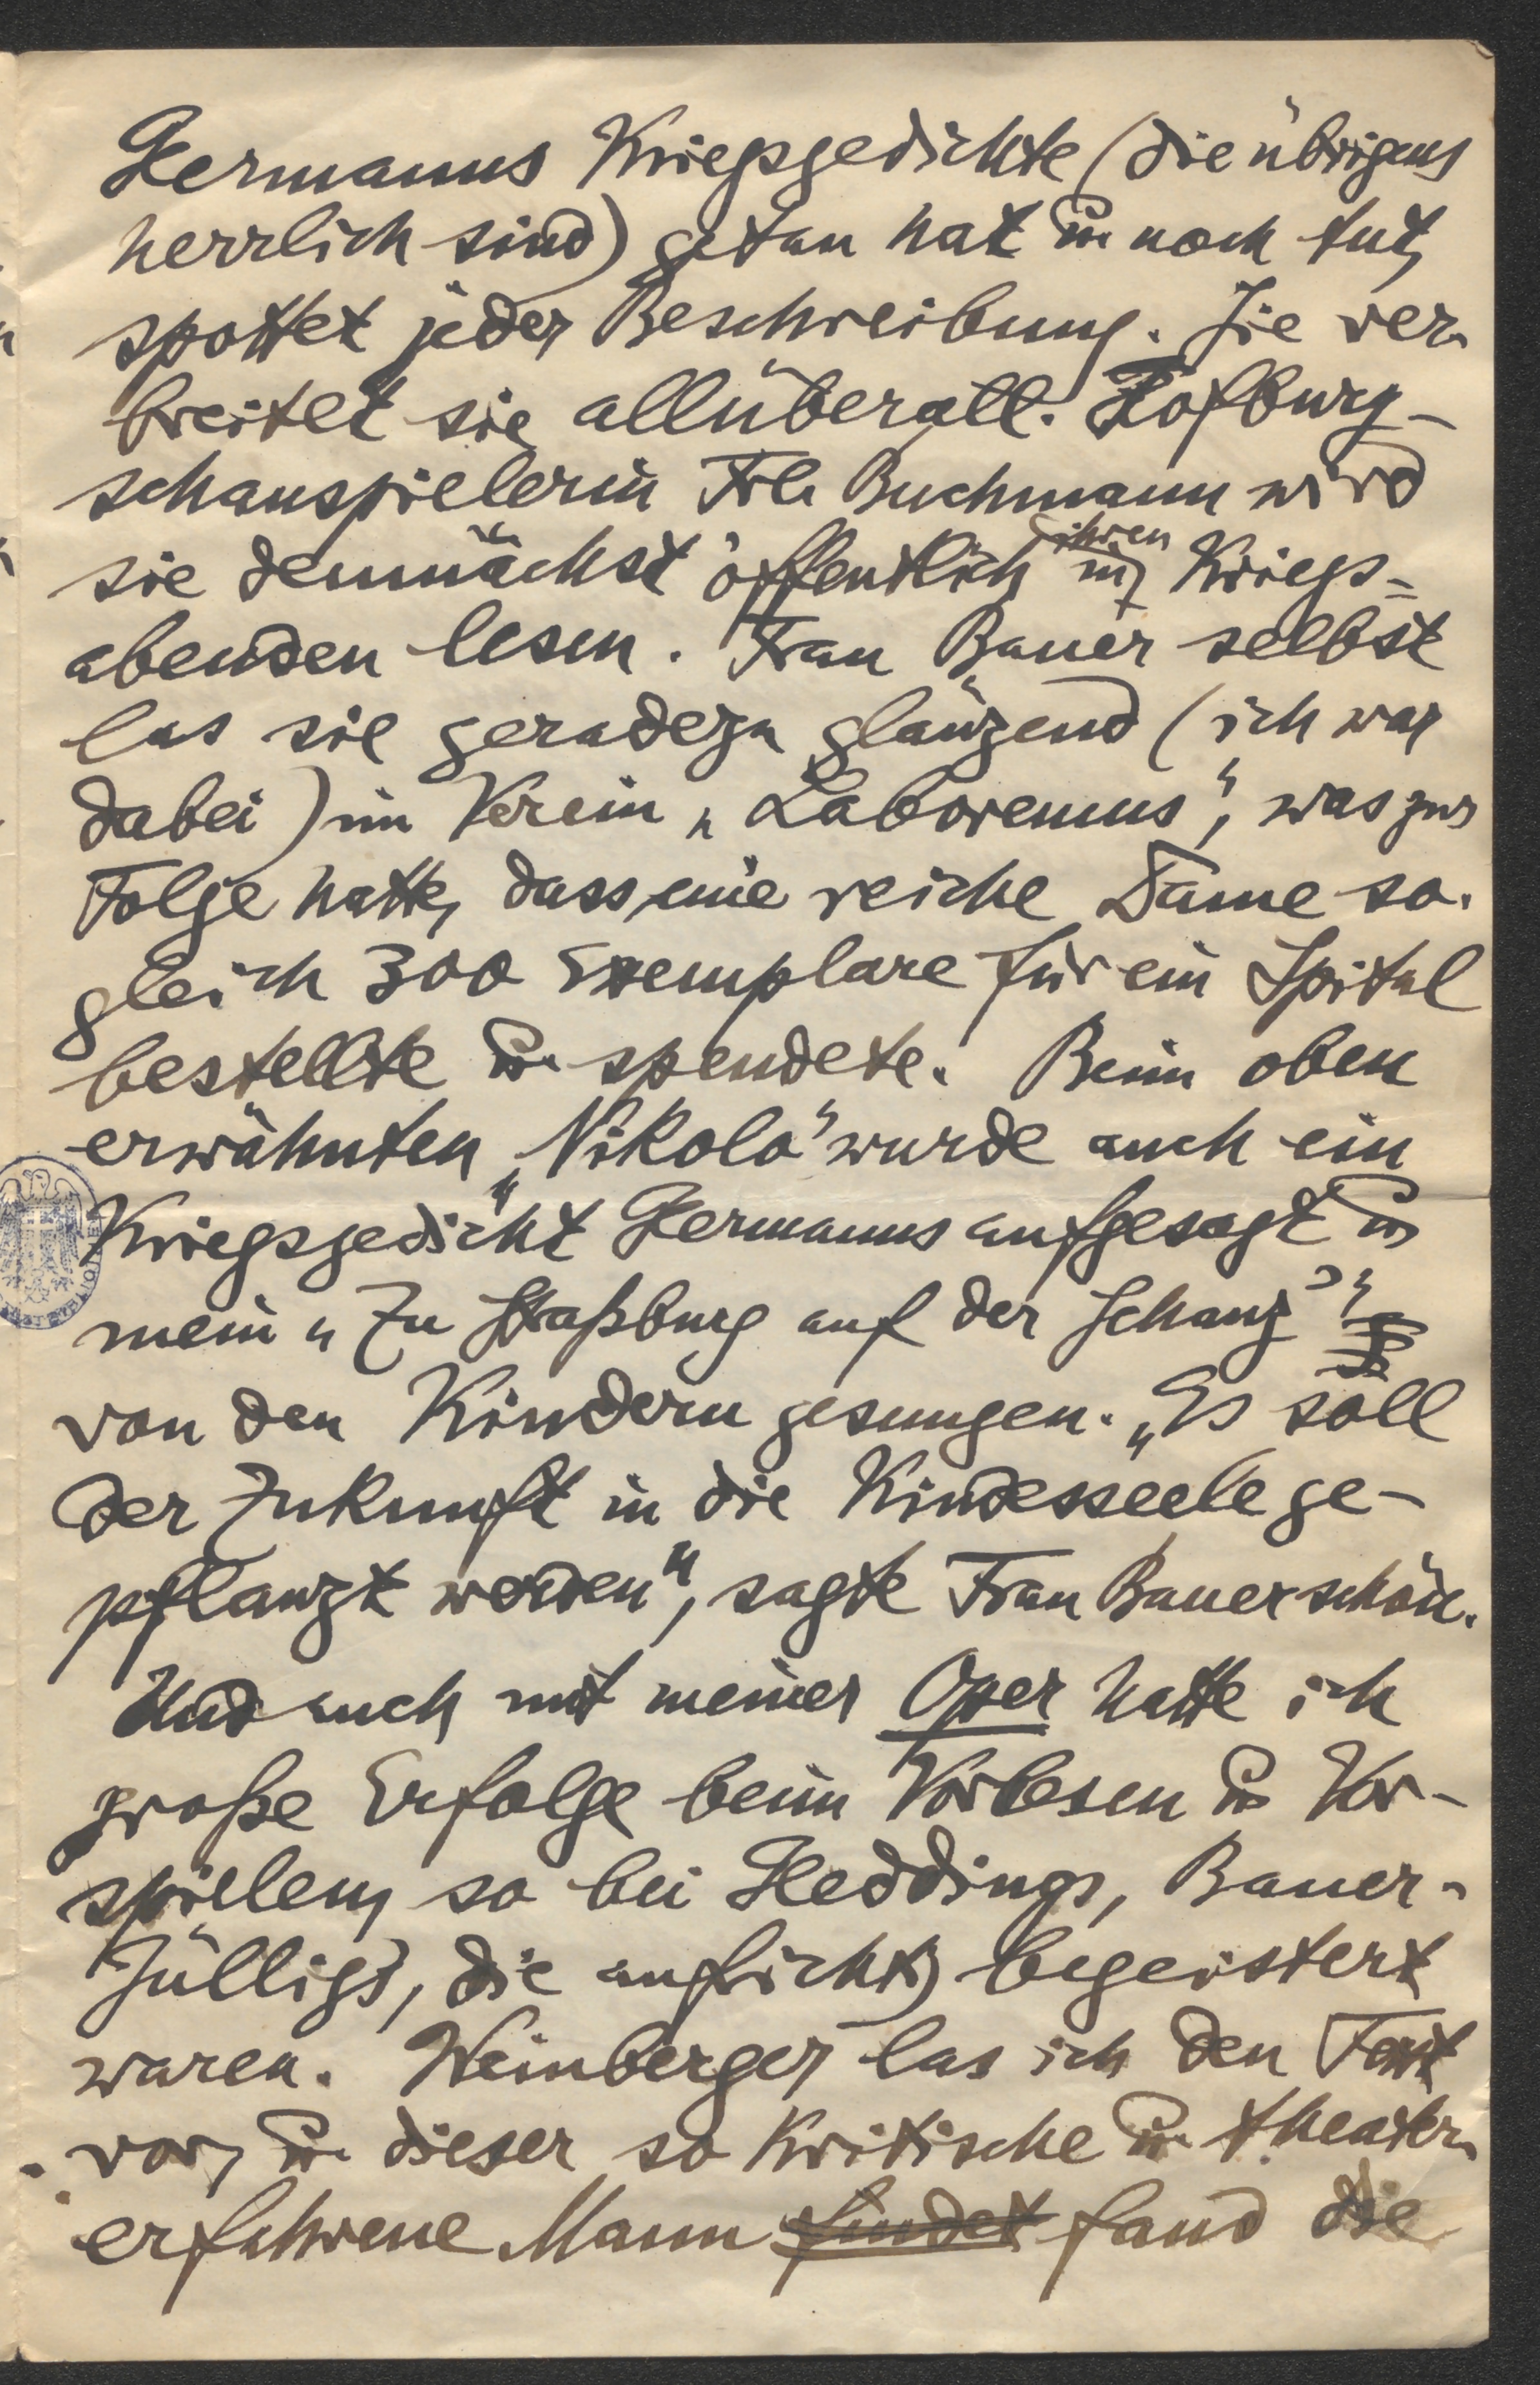 Hermanns Kriegsgedichte (die übrigens
herrlich sind) getan hat u. noch tut,
spottet jeder Beschreibung. Sie ver-
breitet sie allüberall. Hofburg-
schauspielerin Frl. Buchmann wird
sie demnächst öffentlich in ihren Kriegs-
abenden lesen. Frau Bauer selbst
las sie geradezu glänzend (ich war
dabei) im Verein „Laboremus", was zur
Folge hatte, dass eine reiche Dame so-
gleich 300 Exemplare für ein Spital
bestellte u. spendete. Beim oben
erwähnten „Nikolo" wurde auch ein
Kriegsgedicht Hermanns aufgesagt u.
mein „Zu Straßburg auf der Schanz"
von den Kindern gesungen. „Es soll
der Zukunft in die Kindesseele ge-
pflanzt werden", sagte Frau Bauer schön.
Und auch mit meiner Oper hatte ich
große Erfolge beim Vorlesen u. Vor-
spielen, so bei Heddings, Bauer-
Jülligs, die aufrichtig begeistert
waren. Weinberger las ich den Text
vor, u. dieser so kritische u. theater-
erfahrene Mann findet fand die